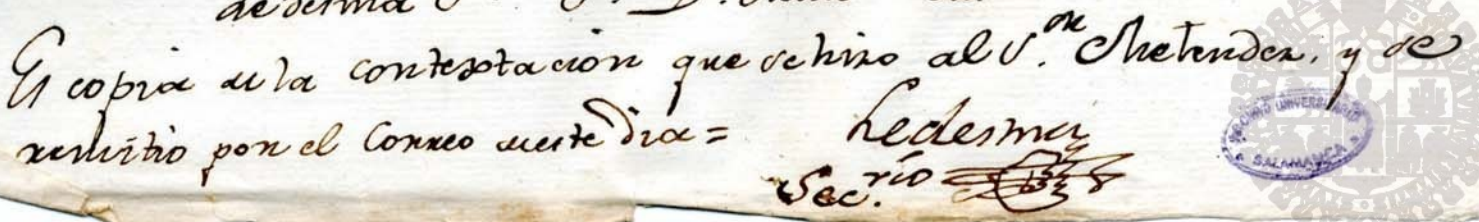 Es copia de la contextacion que se hizo al S.or Melendez, y se
remitio por el Correo de este dia =
Ledesma
Sec.rio
ARCHIVO UNIVERSITARIO
SALAMANCA